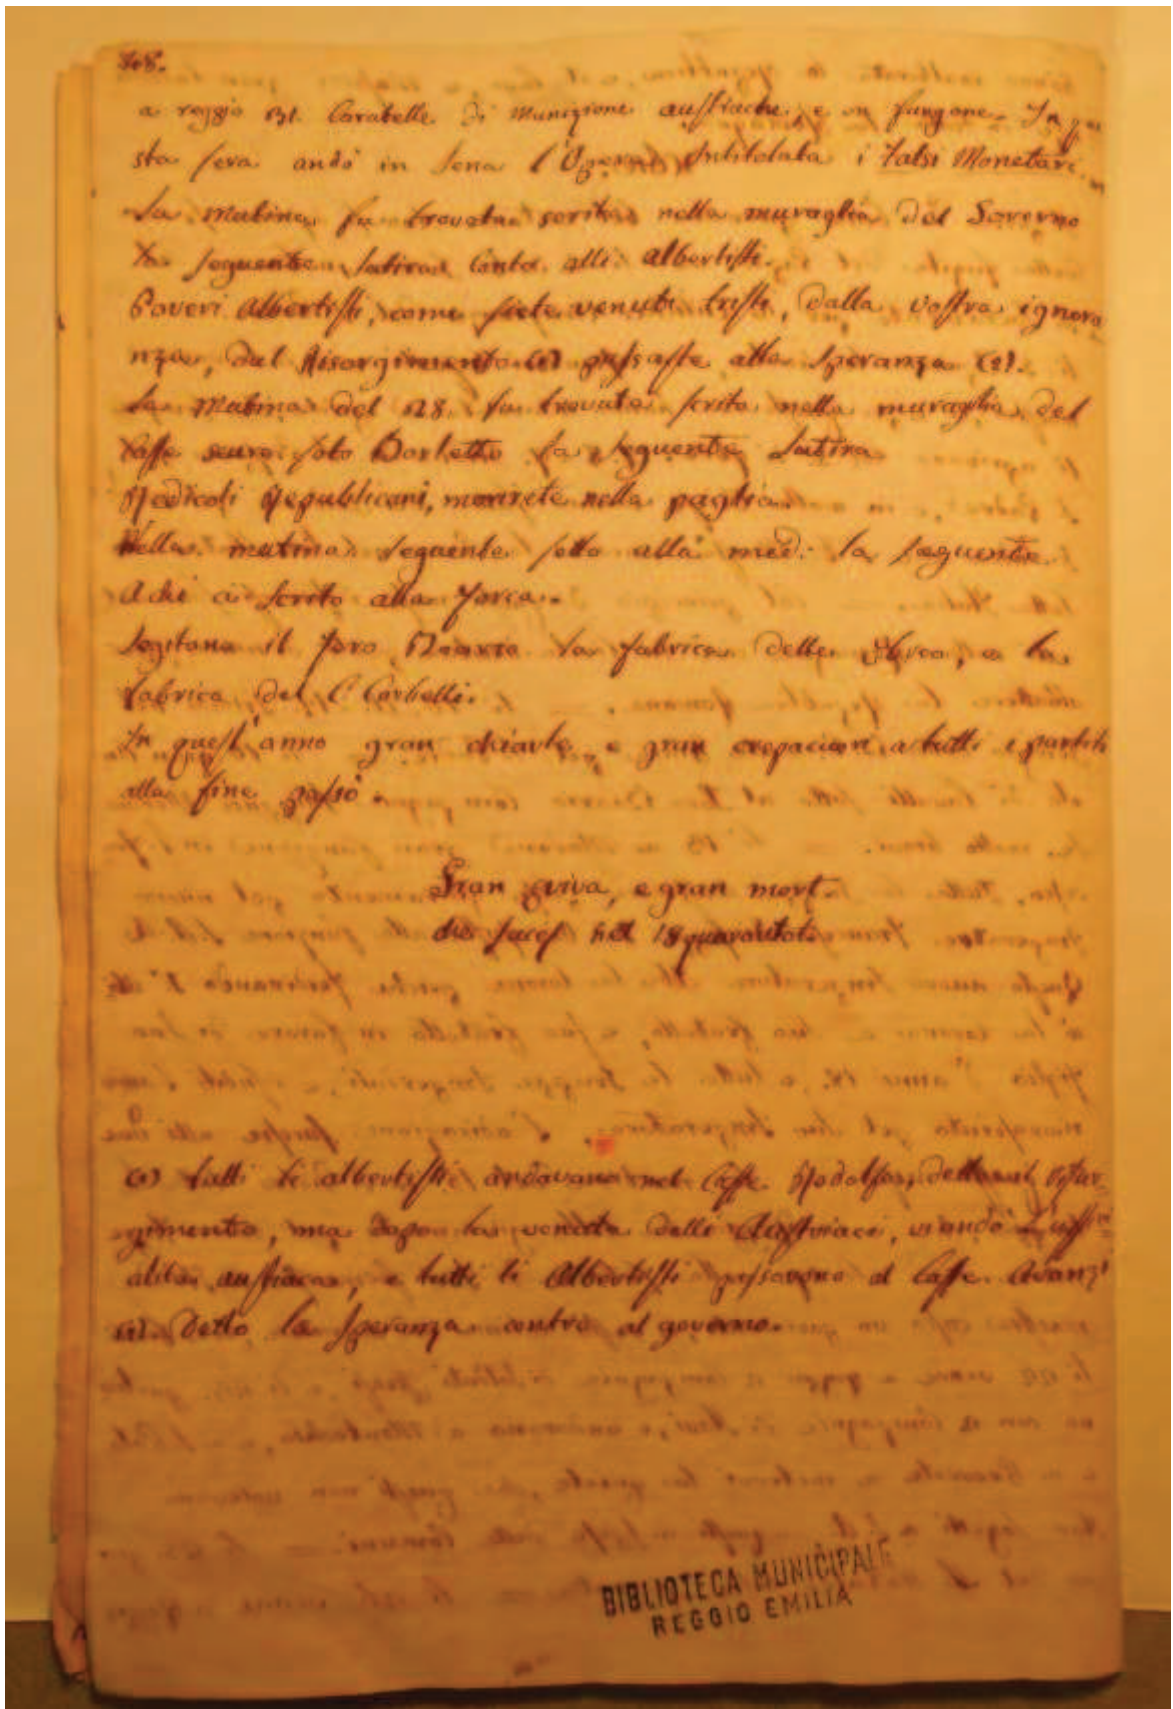 a reggio Carabelle di Munizione austriache, e un furgone. In que
sta sera andò in Sena l'Opera Intitolata i Falsi Monetari.
La Matina fu trovata scrita nella muraglia del Governo
la seguente Satira Contra alli Albertisti.
Poveri Albertisti, come siete venuti tristi, dalla vostra ignora
nza, dal Risorgimento (1) passaste alla Speranza (2).
La Matina del 28. fu trovata scrita nella muraglia del
Caffe scuro soto Borletto la seguente Satira
Redicoli Republicani, morirete nella paglia.
Nella matina seguente sotto alla med: la seguente
A chi à scrito alla forca.
Segitana il la fabrica delle, e la
fabrica del C. Corbelli.
In quest'anno gran chiarle, e gran crepacieri a tutti i partiti
alla fine passò.
Gran eviva, e gran mort.
che facesf nel 18quarantot.
(1) tutti li albertisti andavano nel Caffe Rodolfo, detto il Risor
gimento, ma dopo la venuta delli Austriaci, vi andò l'uffi
alità austriaca, e tutti li Albertisti passavono al Caffe Avanzi
(2). Detto la Speranza contro al governo.
BIBLIOTECA MUNICIPALE
REGGIO EMILIA